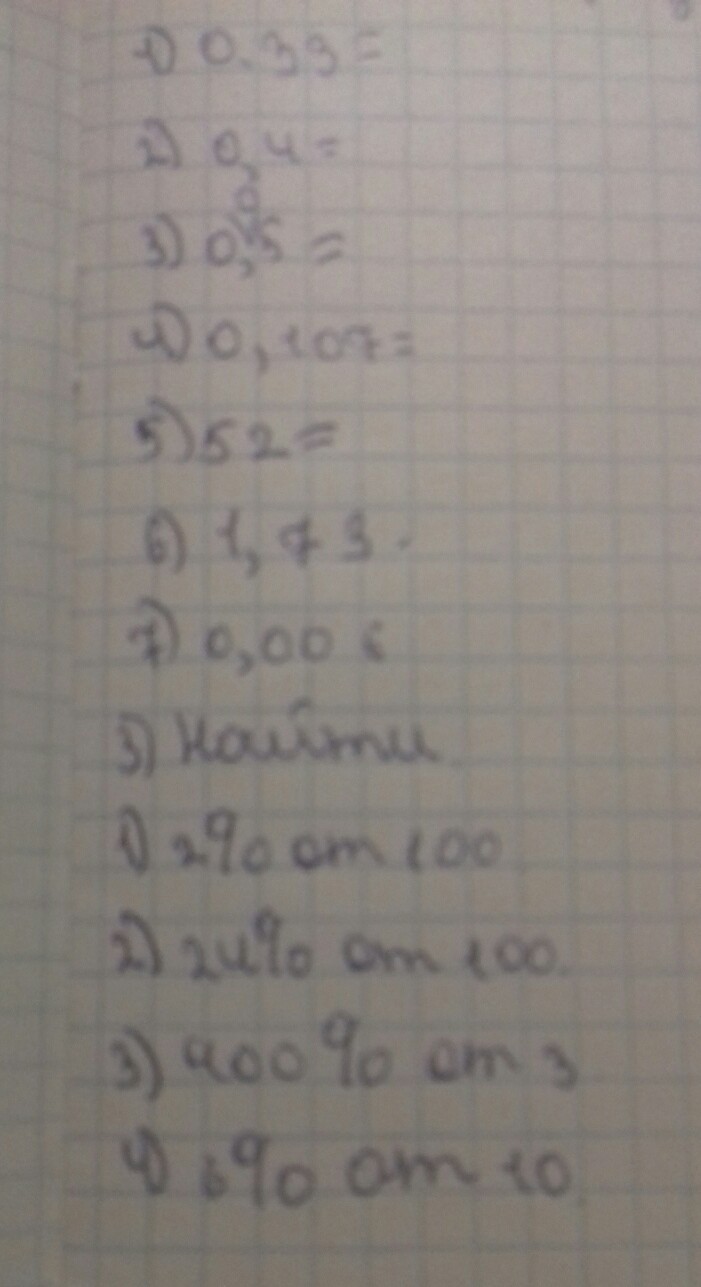 1) 0.39=
2) 0,4=
3) 0,05=
4) 0,107=
5) 52=
6) 1,73.
7) 0,006
3) Найти
1) 2% от 100
2) 24% от 100.
3) 400% от 3
4) 6% от 10